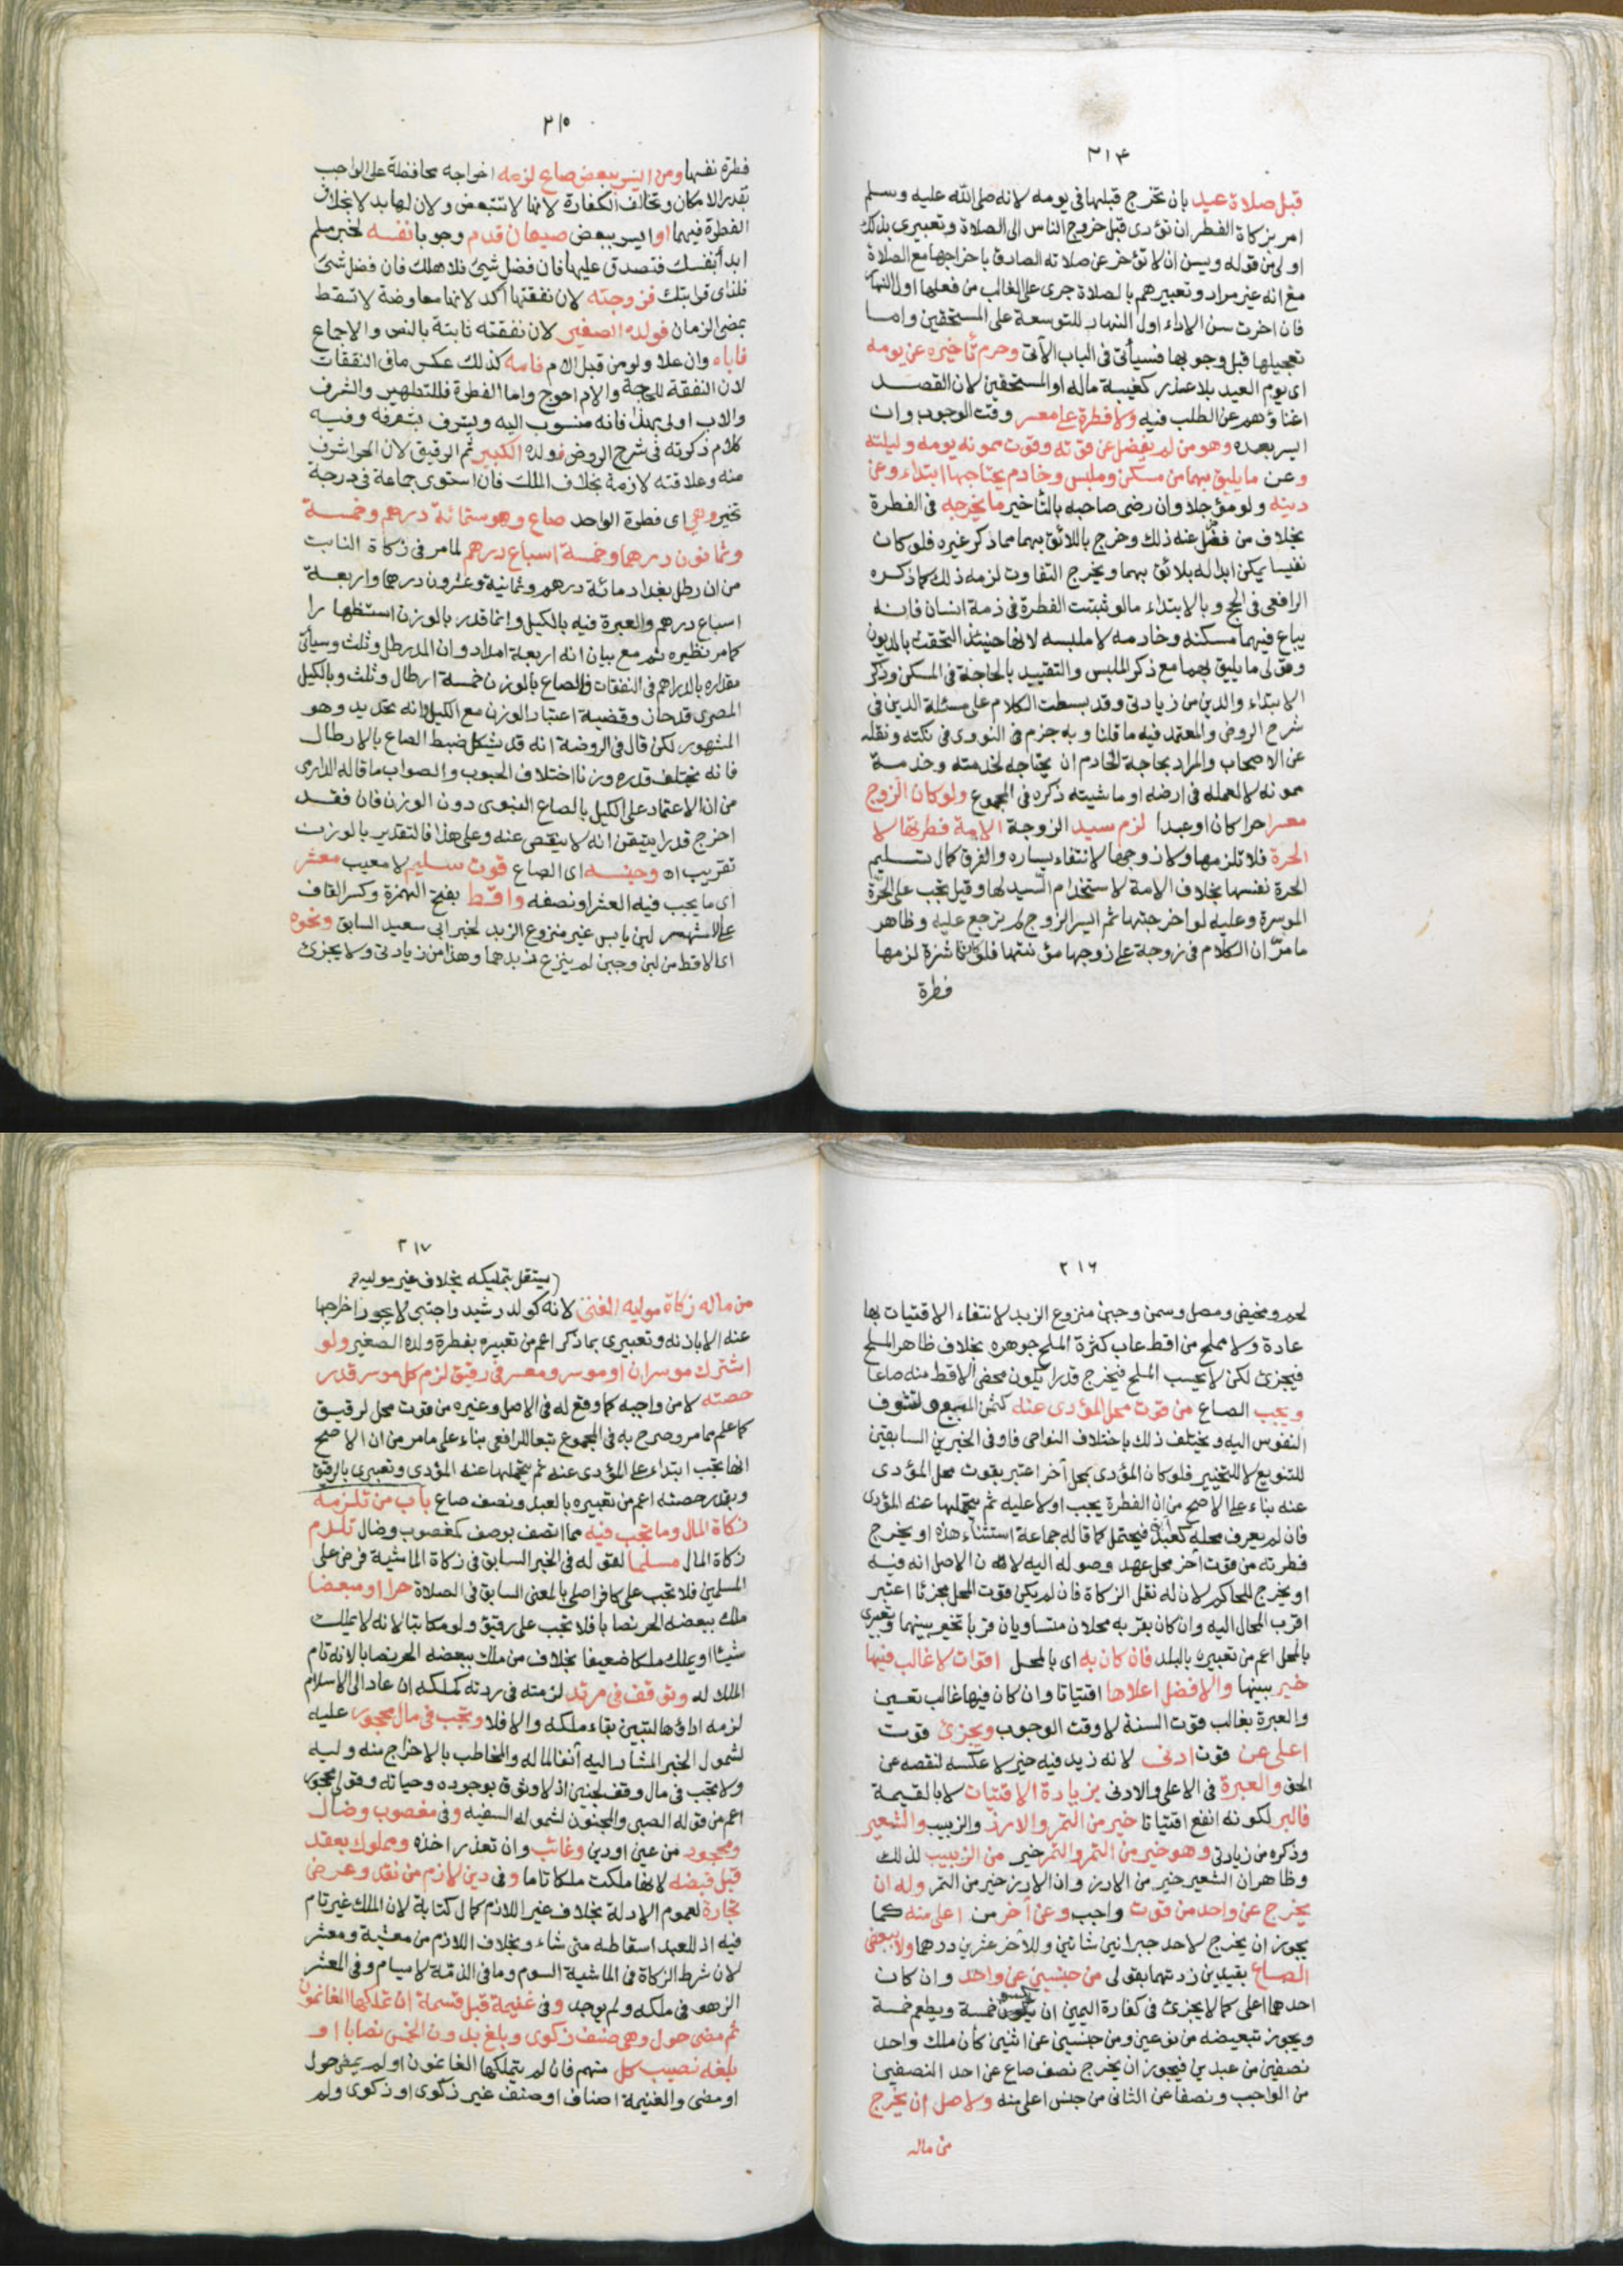 ٢١٤
قبل صلاة عيد بان تخرج قبلها فى يومه لانه صلى الله عليه وسلم
امر بزكاة الفطر ان تؤدى قبل خروج الناس الى الصلاة وتعبيرى بذلك
اولى من قوله ويسن ان لا تؤخر عن صلاته الصادق باخراجها مع الصلاة
مع انه غير مراد وتعبيرهم بالصلاة جرى على الغالب من فعلها اول النهار
فان اخرت سن الاداء اول النهار للتوسعة على المستحقين واما
تعجيلها قبل وجوبها فسيأتى فى الباب الآتى وحرم تأخيره عن يومه
اى يوم العيد بلا عذر كغيبة ماله او المستحقين لان القصد
اغناؤهم عن الطلب فيه ولا فطرة على معسر وقت الوجوب وان
ايسر بعده وهو من لم يفضل عن قوته وقوت ممونه يومه وليلته
وعن ما يليق بهما من مسكن وملبس وخادم يحتاجها ابتداء وعن
دينه ولو مؤجلا وان رضى صاحبه بالتأخير ما يخرجه فى الفطرة
بخلاف من فضل عنه ذلك وخرج باللائق بهما مما ذكر غيره فلو كان
نفيسا يمكن ابداله بلائق بهما ويخرج التفاوت لزمه ذلك كما ذكره
الرافعى فى الحج وبالابتداء ما لو ثبتت الفطرة فى ذمة انسان فانه
يباع فيهما مسكنه وخادمه لا ملبسه لانها حينئذ التحقت بالديون
وقولى ما يليق بهما مع ذكر الملبس والتقييد بالحاجة فى المسكن وذكر
الابتداء والدين من زيادتى وقد بسطت الكلام على مسئلة الدين فى
شرح الروض والمعتمد فيه ما قلنا وبه جزم فى النووى فى نكته ونقله
عن الاصحاب والمراد بحاجة الخادم ان يحتاجه لخدمته وخدمة
ممونه لا لعمله فى ارضه او ماشيته ذكره فى المجموع ولو كان الزوج
معسرا حرا كان او عبدا لزم سيد الزوجة الامة فطرتها لا
الحرة فلا تلزمها ولا زوجها لانتفاء يساره والفرق كمال تسليم
الحرة نفسها بخلاف الامة لاستخدام السيد لها وقيل يجب على الحرة
الموسرة وعليه لو اخرجتها ثم ايسر الزوج لم ترجع عليه وظاهر
ما مر ان الكلام فى زوجة على زوجها مؤنتها فلو كانت ناشزة لزمها
فطرة
٢١٥
فطرة نفسها ومن ايسر ببعض صاع لزمه اخراجه محافظة على الواجب
بقدر الامكان وتخالف الكفارة لانها لا تتبعض ولان لها بدلا بخلاف
الفطرة فيهما او ايسر ببعض صيعان قدم وجوبا نفسه لخبر مسلم
ابدأ بنفسك فتصدق عليها فان فضل شئ فلاهلك فان فضل شئ
فلذى قرابتك فزوجته لان نفقتها آكد لانها معاوضة لا تسقط
بمضى الزمان فولده الصغير لان نفقته ثابتة بالنص والاجماع
فاباه وان علا ولو من قبل الام فامه كذلك عكس ما فى النفقات
لان النفقة للحاجة والام احوج واما الفطرة فللتطهير والشرف
والاب اولى بهذا فانه منسوب اليه ويشرف بشرفه وفيه
كلام ذكرته فى شرح الروض فولده الكبير ثم الرقيق لان الحر اشرف
منه وعلاقته لازمة بخلاف الملك فان استوى جماعة فى درجة
تخير وهى اى فطرة الواحد صاع وهو ستمائة درهم وخمسة
وثمانون درهما وخمسة اسباع درهم لما مر فى زكاة النابت
من ان رطل بغداد مائة درهم وثمانية وعشرون درهما واربعة
اسباع درهم والعبرة فيه بالكيل وانما قدر بالوزن استظهارا
كما مر نظيره ثم مع بيان انه اربعة امداد وان المد رطل وثلث وسيأتى
مقداره بالدراهم فى النفقات فالصاع بالوزن خمسة ارطال وثلث وبالكيل
المصرى قدحان وقضية اعتبار الوزن مع الكيل وانه تحديد وهو
المشهور لكن قال فى الروضة انه قد يشكل ضبط الصاع بالارطال
فانه يختلف قدره وزنا باختلاف الحبوب والصواب ما قاله الدارمى
من ان الاعتماد على الكيل بالصاع النبوى دون الوزن فان فقد
اخرج قدرا يتيقن انه لا ينقص عنه وعلى هذا فالتقدير بالوزن
تقريب اه وجنسه اى الصاع قوت سليم لا معيب معشر
اى ما يجب فيه العشر او نصفه واقط بفتح الهمزة وكسر القاف
على الاشهر لبن يابس غير منزوع الزبد لخبر ابى سعيد السابق ونحوه
اى الاقط من لبن وجبن لم ينزع زبدهما وهذا من زيادتى ولا يجزئ
٢١٦
لحم ومخيض ومصل وسمن وجبن منزوع الزبد لانتفاء الاقتيات بها
عادة ولا مملح من اقط عاب كثرة الملح جوهره بخلاف ظاهر الملح
فيجزئ لكن لا يحسب الملح فيخرج قدرا يكون محض الاقط منه صاعا
ويجب الصاع من قوت محل المؤدى عنه كثمن المبيع ولتشوف
النفوس اليه ويختلف ذلك باختلاف النواحى فاو فى الخبرين السابقين
للتنويع لا للتخيير فلو كان المؤدى بمحل آخر اعتبر بقوت محل المؤدى
عنه بناء على الاصح من ان الفطرة يجب اولا عليه ثم يتحملها عنه المؤدى
فان لم يعرف محله كعبد آبق فيحتمل كما قاله جماعة استثناء هذه او يخرج
فطرته من قوت آخر محل عهد وصوله اليه لان الاصل انه فيه
او يخرج للحاكم لان له نقل الزكاة فان لم يكن قوت المحل مجزئا اعتبر
اقرب المحال اليه وان كان بقربه محلان متساويان قربا تخير بينهما وتعبيرى
بالمحل اعم من تعبيره بالبلد فان كان به اى بالمحل اقوات لا غالب فيها
خير بينها والافضل اعلاها اقتياتا وان كان فيها غالب تعين
والعبرة بغالب قوت السنة لا وقت الوجوب ويجزئ قوت
اعلى عن قوت ادنى لانه زيد فيه خير لا عكسه لنقصه عن
الحق والعبرة فى الاعلى والادنى بزيادة الاقتيات لا بالقيمة
فالبر لكونه انفع اقتياتا خير من التمر والارز والزبيب والشعير
وذكره من زيادتى وهو خير من التمر والتمر خير من الزبيب لذلك
وظاهر ان الشعير خير من الارز وان الارز خير من التمر وله ان
يخرج عن واحد من قوت واجب وعن آخر من اعلى منه كما
يجوز ان يخرج لاحد جبرانين شاتين وللآخر عشرين درهما ولا يبعض
الصاع بقيدين زدتهما بقولى من جنسين عن واحد وان كان
احدهما اعلى كما لا يجزئ فى كفارة اليمين ان يكسو خمسة ويطعم خمسة
ويجوز تبعيضه من نوعين ومن جنسين عن اثنين كان ملك واحد
نصفين من عبدين فيجوز ان يخرج نصف صاع عن احد النصفين
من الواجب ونصفا عن الثانى من جنس اعلى منه ولاصل ان يخرج
من ماله
٢١٧
يستقل بتمليكه بخلاف غير موليه
من ماله زكاة موليه الغنى لانه كولد رشيد واجنبى لا يجوز اخراجها
عنه الا باذنه وتعبيرى بما ذكر اعم من تعبيره بفطرة ولده الصغير ولو
اشترك موسران او موسر ومعسر فى رقيق لزم كل موسر قدر
حصته لا من واجبه كما وقع له فى الاصل وغيره من قوت محل الرقيق
كما علم مما مر وصرح به فى المجموع تبعا للرافعى بناء على ما مر من ان الاصح
انها تجب ابتداء على المؤدى عنه ثم يتحملها عنه المؤدى وتعبيرى بالرقيق
وبقدر حصته اعم من تعبيره بالعبد ونصف صاع باب من تلزمه
زكاة المال وما تجب فيه مما اتصف بوصف كمغصوب وضال تلزم
زكاة المال مسلما لقوله فى الخبر السابق فى زكاة الماشية فرض على
المسلمين فلا تجب على كافر اصلى بالمعنى السابق فى الصلاة حرا او مبعضا
ملك ببعضه الحر نصابا فلا تجب على رقيق ولو مكاتبا لانه لا يملك
شيئا او يملك ملكا ضعيفا بخلاف من ملك ببعضه الحر نصابا لانه تام
الملك له وتوقف فى مرتد لزمته فى ردته كملكه ان عاد الى الاسلام
لزمه اداؤها لتبين بقاء ملكه والا فلا وتجب فى مال محجور عليه
لشمول الخبر المشار اليه آنفا لماله والمخاطب بالاخراج منه وليه
ولا تجب فى مال وقف لجنين اذ لا وثوق بوجوده وحياته وقولى محجور
اعم من قوله الصبى والمجنون لشموله السفيه وفى مغصوب وضال
ومجحود من عين او دين وغائب وان تعذر اخذه ومملوك بعقد
قبل قبضه لانها ملكت ملكا تاما وفى دين لازم من نقد وعرض
تجارة لعموم الادلة بخلاف غير اللازم كمال كتابة لان الملك غير تام
فيه اذ للعبد اسقاطه متى شاء وبخلاف اللازم من معشبة ومعشر
لان شرط الزكاة فى الماشية السوم وما فى الذمة لا يسام وفى المعشر
الزهو فى ملكه ولم يوجد وفى غنيمة قبل قسمة ان تملكها الغانمون
ثم مضى حول وهى صنف زكوى وبلغ بدون الخمس نصابا او
بلغه نصيب كل منهم فان لم يتملكها الغانمون او لم يمض حول
او مضى والغنيمة اصناف او صنف غير زكوى او زكوى ولم